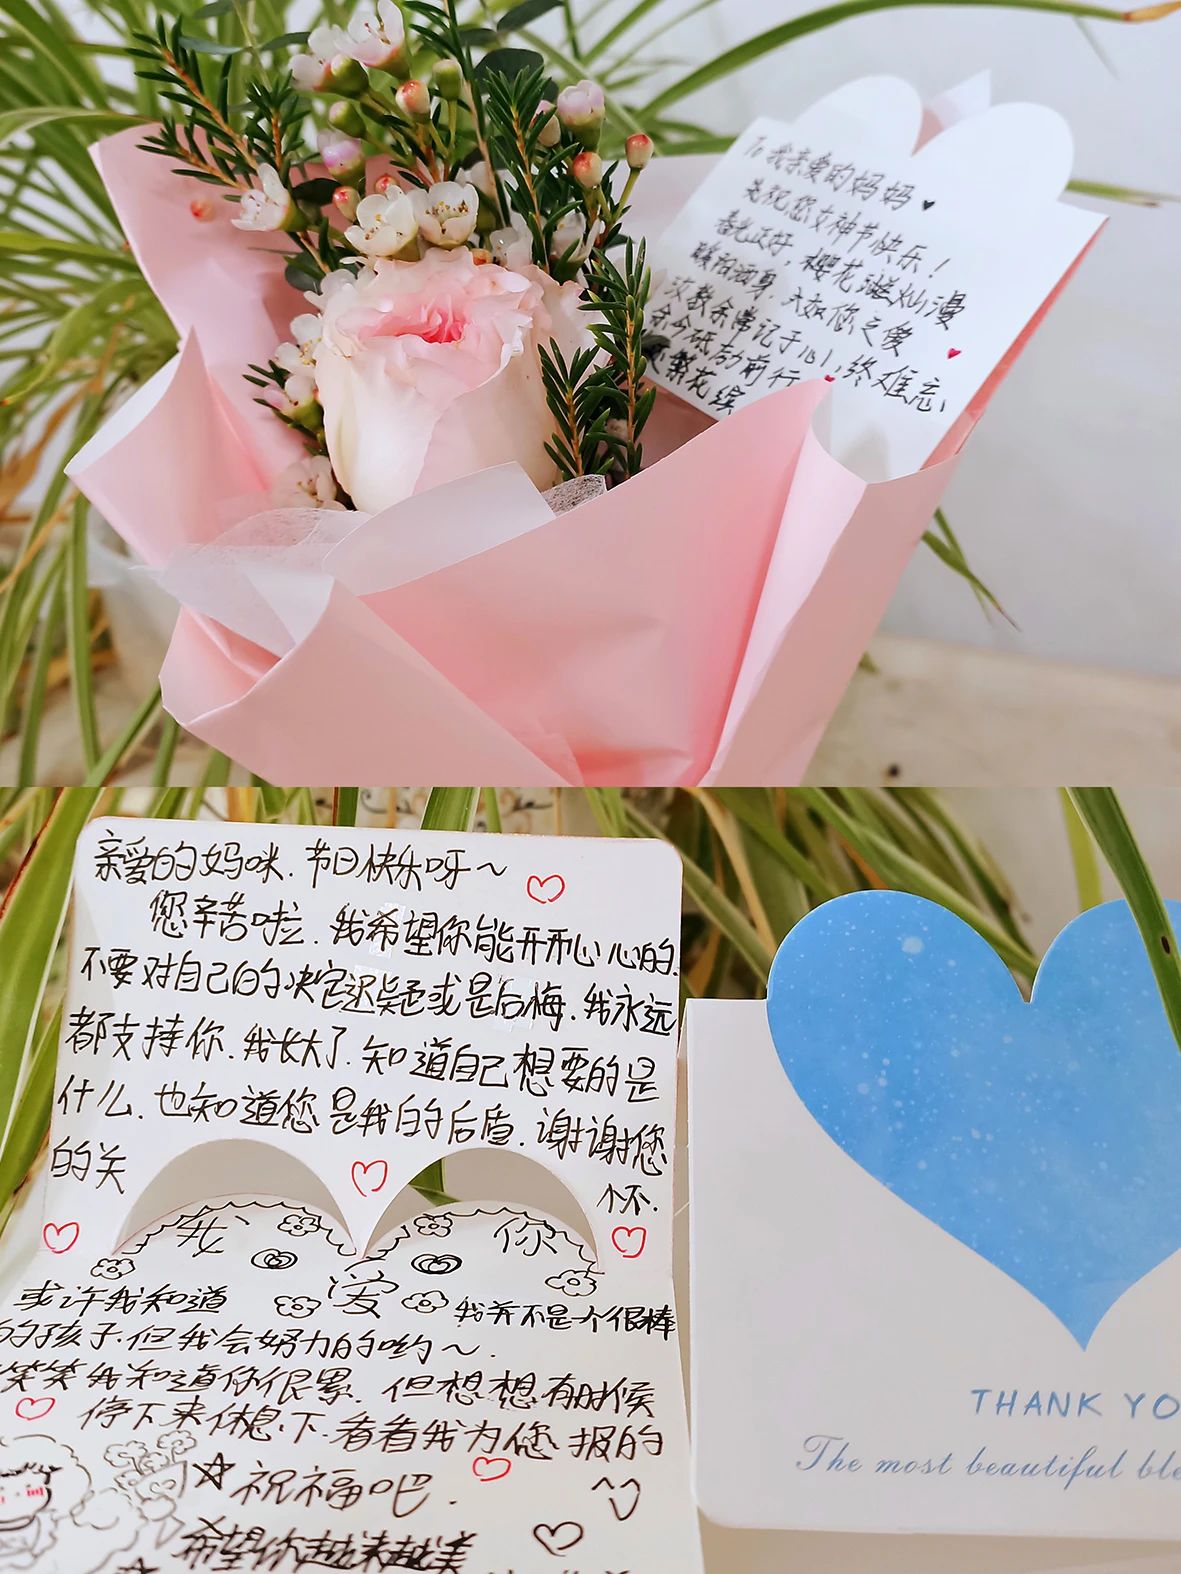 To 我亲爱的妈妈
先祝您女神节快乐！
春光正好，樱花浪漫
暖阳洒身，大如您之傻
汝教余常记于心，终难忘
余今砥砺前行
繁花缤
亲爱的妈咪.节日快乐呀～
您辛苦啦.我希望你能开开心心的.
不要对自己的决定迟疑或是后悔.我永远
都支持你.我长大了.知道自己想要的是
什么.也知道您是我的后盾.谢谢您
的关
怀.
我
你
爱
或许我知道
我并不是个很棒
的孩子.但我会努力的哟～.
笑笑我知道你很累.但想想有时候
停下来休息下.看看我为您报的
祝福吧.
希望你越来越美
THANK YO
The most beautiful ble